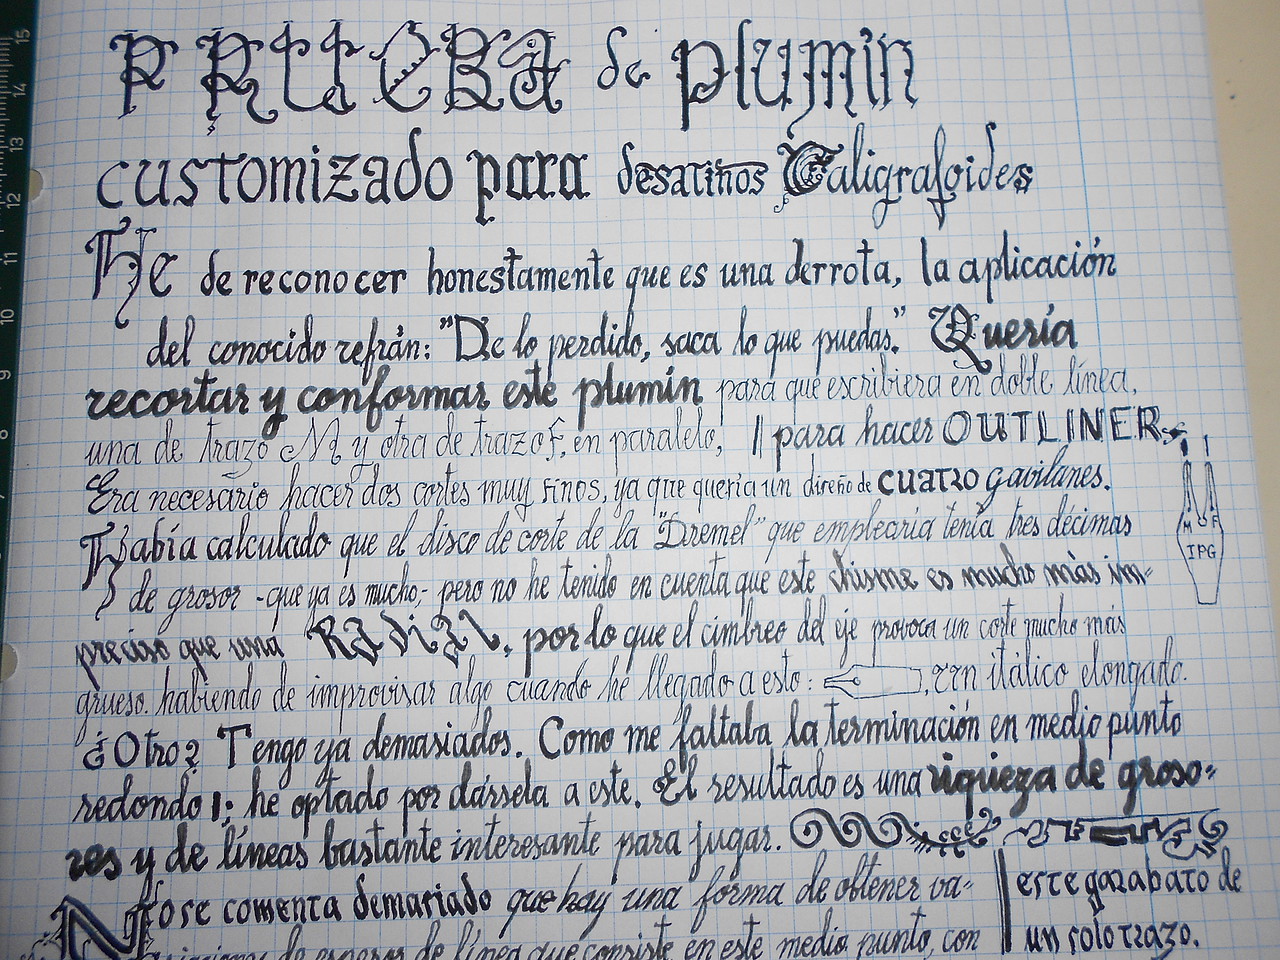 PRUEBA de plumín
customizado para desatinos Caligrafoides
He de reconocer honestamente que es una derrota, la aplicación
del conocido refrán: "De lo perdido, saca lo que puedas." Quería
recortar y conformar este plumín para que escribiera en doble línea,
una de trazo M y otra de trazo F, en paralelo, para hacer OUTLINER.
Era necesario hacer dos cortes muy finos, ya que quería un diseño de cuatro gavilanes.
Había calculado que el disco de corte de la "Dremel" que emplearía tenía tres décimas
M F
IPG
de grosor -que ya es mucho,- pero no he tenido en cuenta que este chisme es mucho más im-
preciso que una RADIAL, por lo que el cimbreo del eje provoca un corte mucho más
grueso. habiendo de improvisar algo cuando he llegado a esto: , un itálico elongado.
¿Otro? Tengo ya demasiados. Como me faltaba la terminación en medio punto
redondo ; he optado por dársela a este. El resultado es una riqueza de groso-
res y de líneas bastante interesante para jugar.
No se comenta demasiado que hay una forma de obtener va-
este garabato de
riaciones de espesor de línea que consiste en este medio punto, con
un solo trazo.